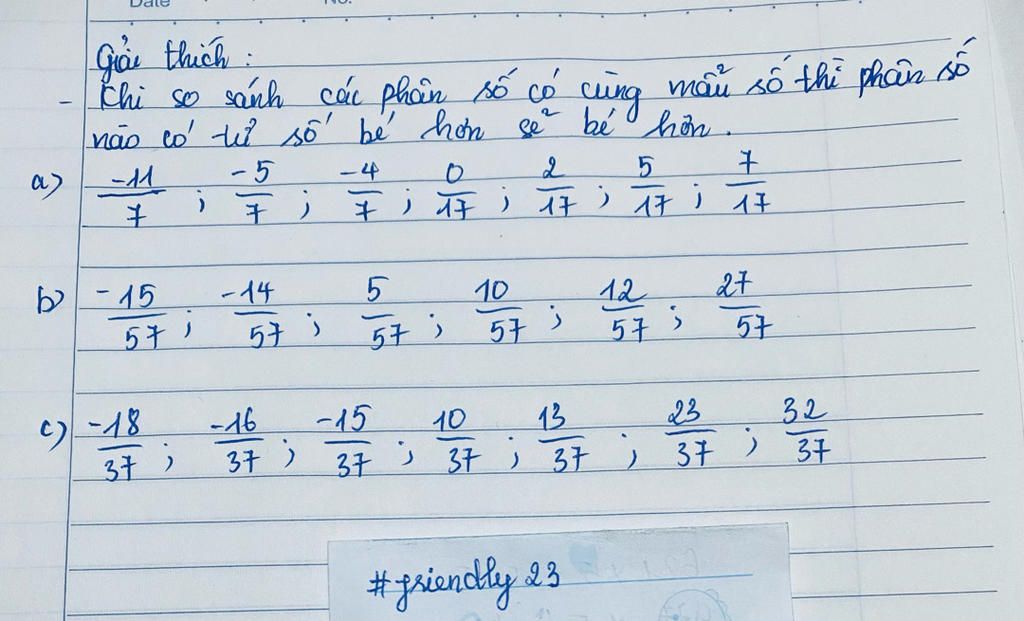 Date No.
Giải thích :
- Khi so sánh các phân số có cùng mẫu số thì phân số
nào có tử số bé hơn sẽ bé hơn.
a) -11/7 ; -5/7 ; -4/7 ; 0/17 ; 2/17 ; 5/17 ; 7/17
b) -15/57 ; -14/57 ; 5/57 ; 10/57 ; 12/57 ; 27/57
c) -18/37 ; -16/37 ; -15/37 ; 10/37 ; 13/37 ; 23/37 ; 32/37
#friendly 23